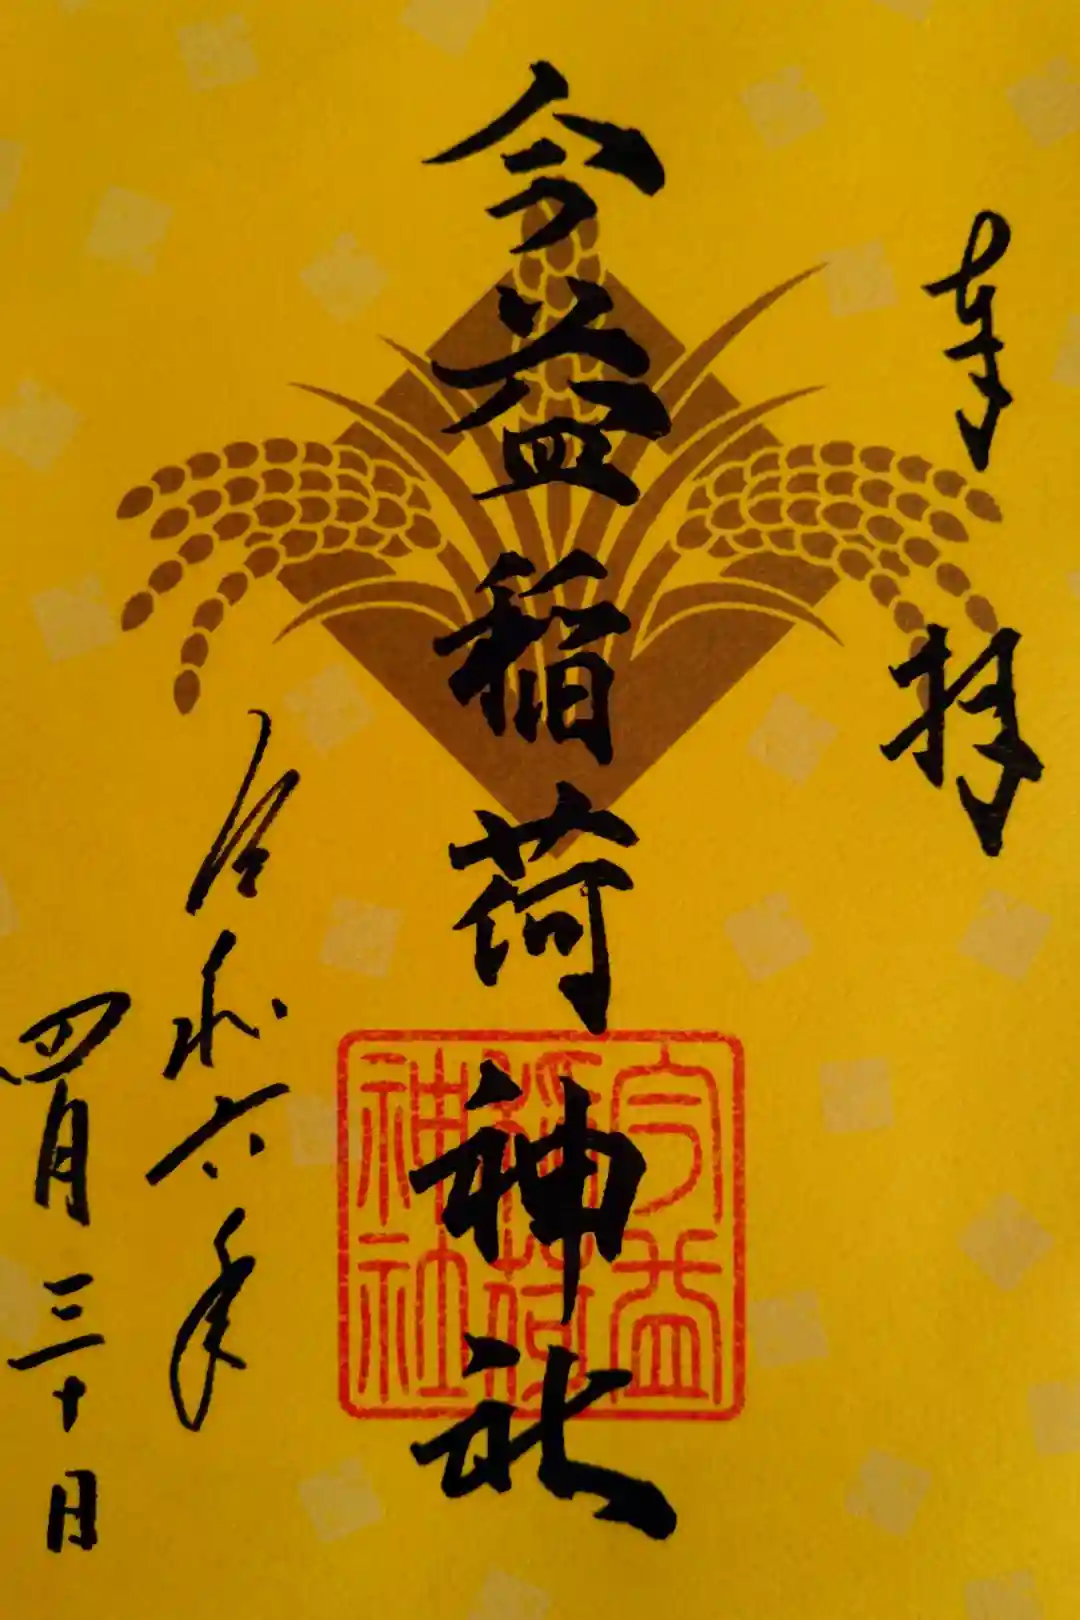 奉拝
今益稲荷神社
今益稲荷神社
令和六年
四月三十日